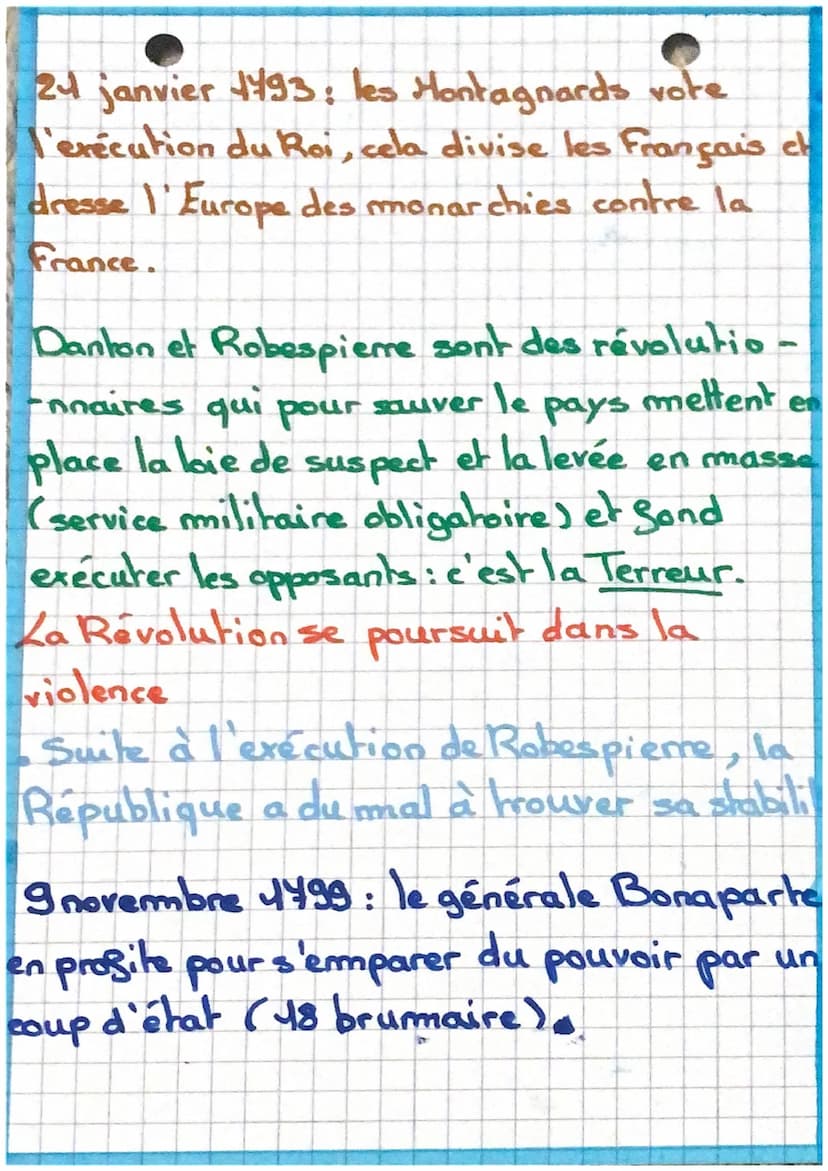 21 janvier 1793 : les Montagnards vote
l'exécution du Roi, cela divise les Français et
dresse l'Europe des monarchies contre la
France.
Danton et Robespierre sont des révolutio -
-nnaires qui pour sauver le pays mettent en
place la loie de suspect et la levée en masse
(service militaire obligatoire) et fond
exécuter les opposants : c'est la Terreur.
La Révolution se poursuit dans la
violence
. Suite à l'exécution de Robespierre, la
République a du mal à trouver sa stabilit
9 novembre 1799 : le générale Bonaparte
en profite pour s'emparer du pouvoir par un
coup d'état (18 brumaire).